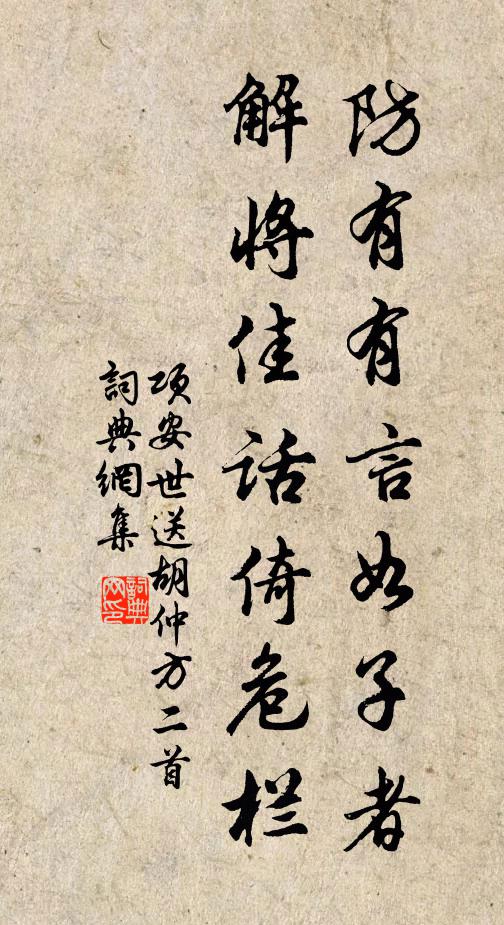 防有有言如子者
解将佳话倚危栏
项安世送胡仲方二首
詞典網集
詞典
网印